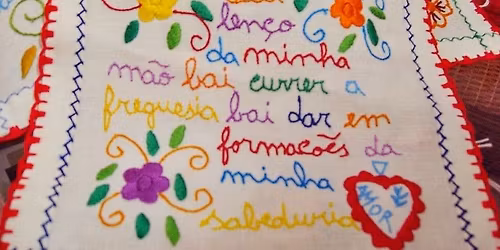 lenço
da minha
mão bai currer a
freguesia bai dar em
formacões da
minha
sabeduria
AMOR